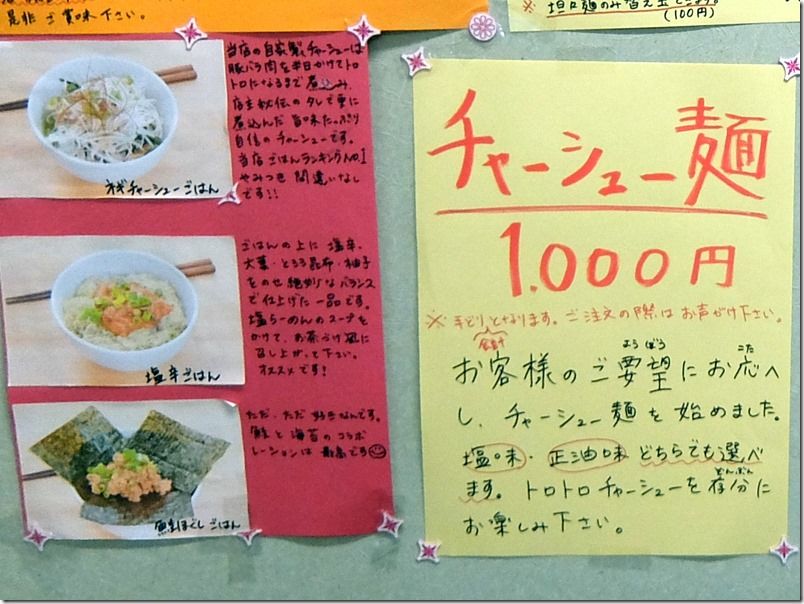 是非ご賞味下さい。
※担々麺のみ替え玉できます
(100円)
当店の自家製チャーシューは
豚バラ肉を半日かけてトロ
トロになるまで煮込み、
店主秘伝のタレで更に
煮込んだ旨味たっぷり
自信のチャーシューです。
当店ごはんランキングNo.1
やみつき間違いなし
です!!
ネギチャーシューごはん
ごはんの上に塩辛・
大葉・とろろ昆布・柚子
をのせ絶妙なバランス
で仕上げた一品です。
塩らーめんのスープを
かけて、お茶づけ風に
召し上がって下さい。
オススメです!
塩辛ごはん
ただ、ただ好きなんです。
鮭と海苔のコラボ
レーションは最高です
鮭ほぐしごはん
チャーシュー麺
1.000円
※手どりとなります。ご注文の際はお声がけ下さい。
会計
お客様のご要望にお応へ
ようぼう
こた
し、チャーシュー麺を始めました。
塩味・正油味どちらでも選べ
ます。トロトロチャーシューを存分に
ぞんぶん
お楽しみ下さい。